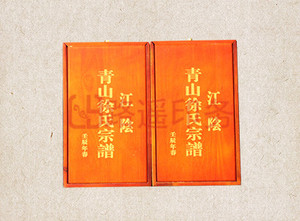 江陰
青山徐氏宗譜
壬辰年春
江陰
青山徐氏宗譜
壬辰年春